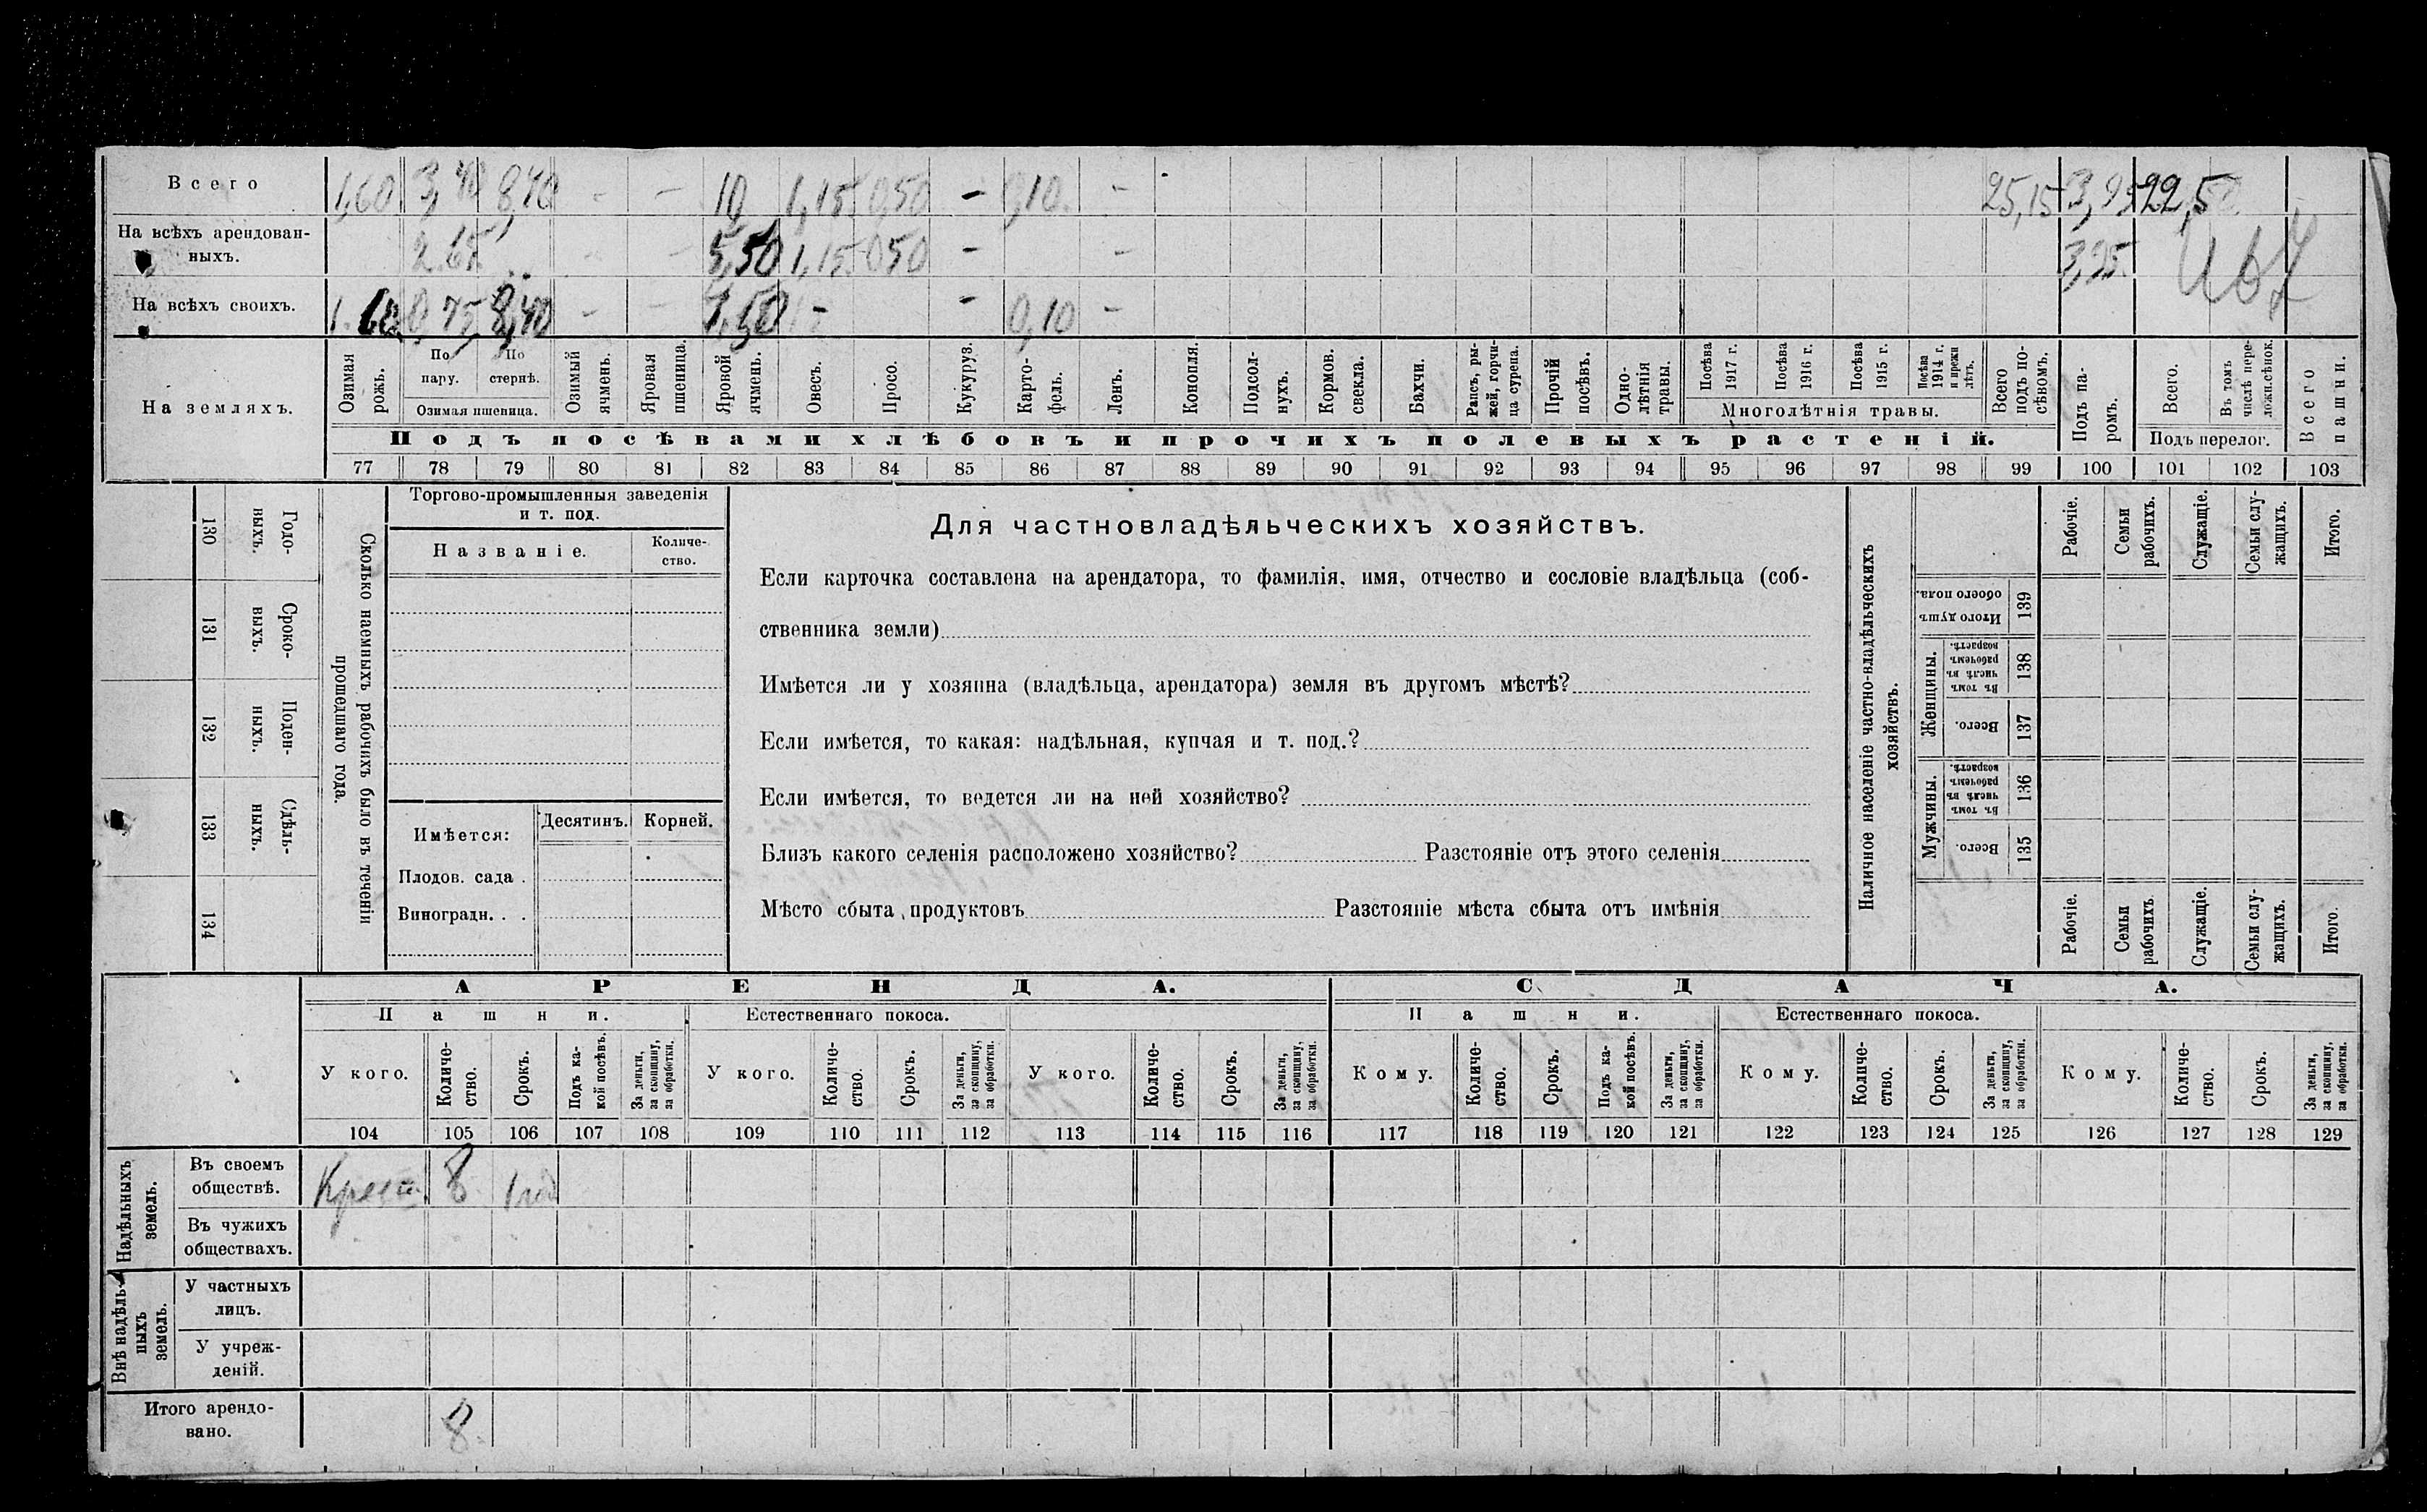 Всего 1,60 3,40 8,40 - - 10, 1,15 0,50 - 0,10 - 25,15 3,25 22,50
На всѣхъ арендован-
ныхъ. 2 65 - - 5,50 1,15 050 - - 3,25
На всѣхъ своихъ. 1.60 0 75 8,40 - - - - 0,10 -
На земляхъ.
Озимая рожь.
По пару.
По стернѣ.
Озимая пшеница.
Озимый ячмень.
Яровая пшеница.
Яровой ячмень.
Овесъ.
Просо.
Кукуруз.
Карто-
фель.
Ленъ.
Конопля.
Подсол-
нухъ.
Кормов. свекла.
Бахчи.
Рапсъ, ры-
жей, горчи-
ца сурепа.
Прочій посѣвъ.
Одно-
лѣтнія травы.
Посѣва 1917 г.
Посѣва 1916 г.
Посѣва 1915 г.
Посѣва 1914 г. и прежн лѣтъ.
Многолѣтнія травы.
Всего подъ по-
сѣвомъ.
Подъ па-
ромъ.
Всего.
Въ томъ числѣ пере-
ложн.сѣнок.
Подъ перелог.
Всего пашни.
Подъ посѣвами хлѣбовъ и прочихъ полевыхъ растеній.
77 78 79 80 81 82 83 84 85 86 87 88 89 90 91 92 93 94 95 96 97 98 99 100 101 102 103
130 Годо-
выхъ.
131 Сроко-
выхъ.
132 Поден-
ныхъ.
133 Сдѣль-
ныхъ.
134
Сколько наемныхъ рабочихъ было въ теченіи
прошедшаго года.
Торгово-промышленныя заведенія
и т. под.
Названіе.
Количе-
ство.
Имѣется: Десятинъ. Корней.
Плодов. сада .
Виноградн. . .
Для частновладѣльческихъ хозяйствъ.
Если карточка составлена на арендатора, то фамилія, имя, отчество и сословіе владѣльца (соб-
ственника земли)
Имѣется ли у хозяина (владѣльца, арендатора) земля въ другомъ мѣстѣ?
Если имѣется, то какая: надѣльная, купчая и т. под.?
Если имѣется, то ведется ли на ней хозяйство?
Близъ какого селенія расположено хозяйство? Разстояніе отъ этого селенія
Мѣсто сбыта продуктовъ Разстояніе мѣста сбыта отъ имѣнія
Наличное населеніе частно-владѣльческихъ
хозяйствъ.
Рабочіе.
Семьи рабочихъ.
Служащіе.
Семьи слу-
жащихъ.
Итого.
Итого душъ обоего пола. 139
Женщины.
Въ томъ числѣ въ рабочемъ возрастѣ. 138
Всего. 137
Мужчины.
Въ томъ числѣ въ рабочемъ возрастѣ. 136
Всего. 135
Рабочіе.
Семьи рабочихъ.
Служащіе.
Семьи слу-
жащихъ.
Итого.
АРЕНДА. СДАЧА.
Пашни. Естественнаго покоса. Пашни. Естественнаго покоса.
У кого.
Количе-
ство.
Срокъ.
Подъ ка-
кой посѣвъ.
За деньги, за скопщину, за обработки.
У кого.
Количе-
ство.
Срокъ.
За деньги, за скопщину, за обработки.
У кого.
Количе-
ство.
Срокъ.
За деньги, за скопщину, за обработки.
Кому.
Количе-
ство.
Срокъ.
Подъ ка-
кой посѣвъ.
За деньги, за скопщину, за обработки.
Кому.
Количе-
ство.
Срокъ.
За деньги, за скопщину, за обработки.
Кому.
Количе-
ство.
Срокъ.
За деньги, за скопщину, за обработки.
104 105 106 107 108 109 110 111 112 113 114 115 116 117 118 119 120 121 122 123 124 125 126 127 128 129
Надѣльныхъ земель.
Въ своемъ
обществѣ. Крест. 8 1 год
Въ чужихъ
обществахъ.
Внѣ надѣль-
ныхъ земель.
У частныхъ
лицъ.
У учреж-
деній.
Итого арендо-
вано. 8.